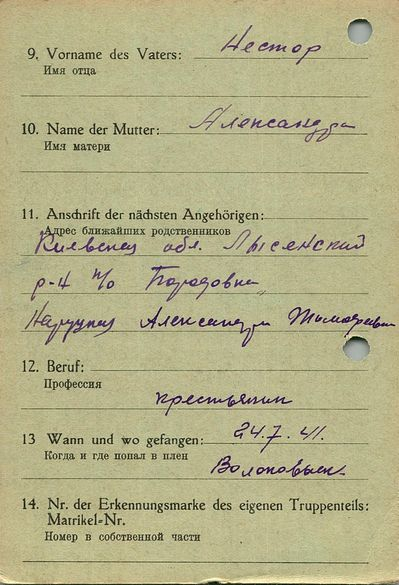 9. Vorname des Vaters: Нестор
Имя отца
10. Name der Mutter: Александра
Имя матери
11. Anschrift der nächsten Angehörigen:
Адрес ближайших родственников
Киевская обл. Лысенский
р-н п/о Боровка
Александра
12. Beruf:
Профессия
крестьянин
13 Wann und wo gefangen: 24.7.41.
Когда и где попал в плен
14. Nr. der Erkennungsmarke des eigenen Truppenteils:
Matrikel-Nr.
Номер в собственной части